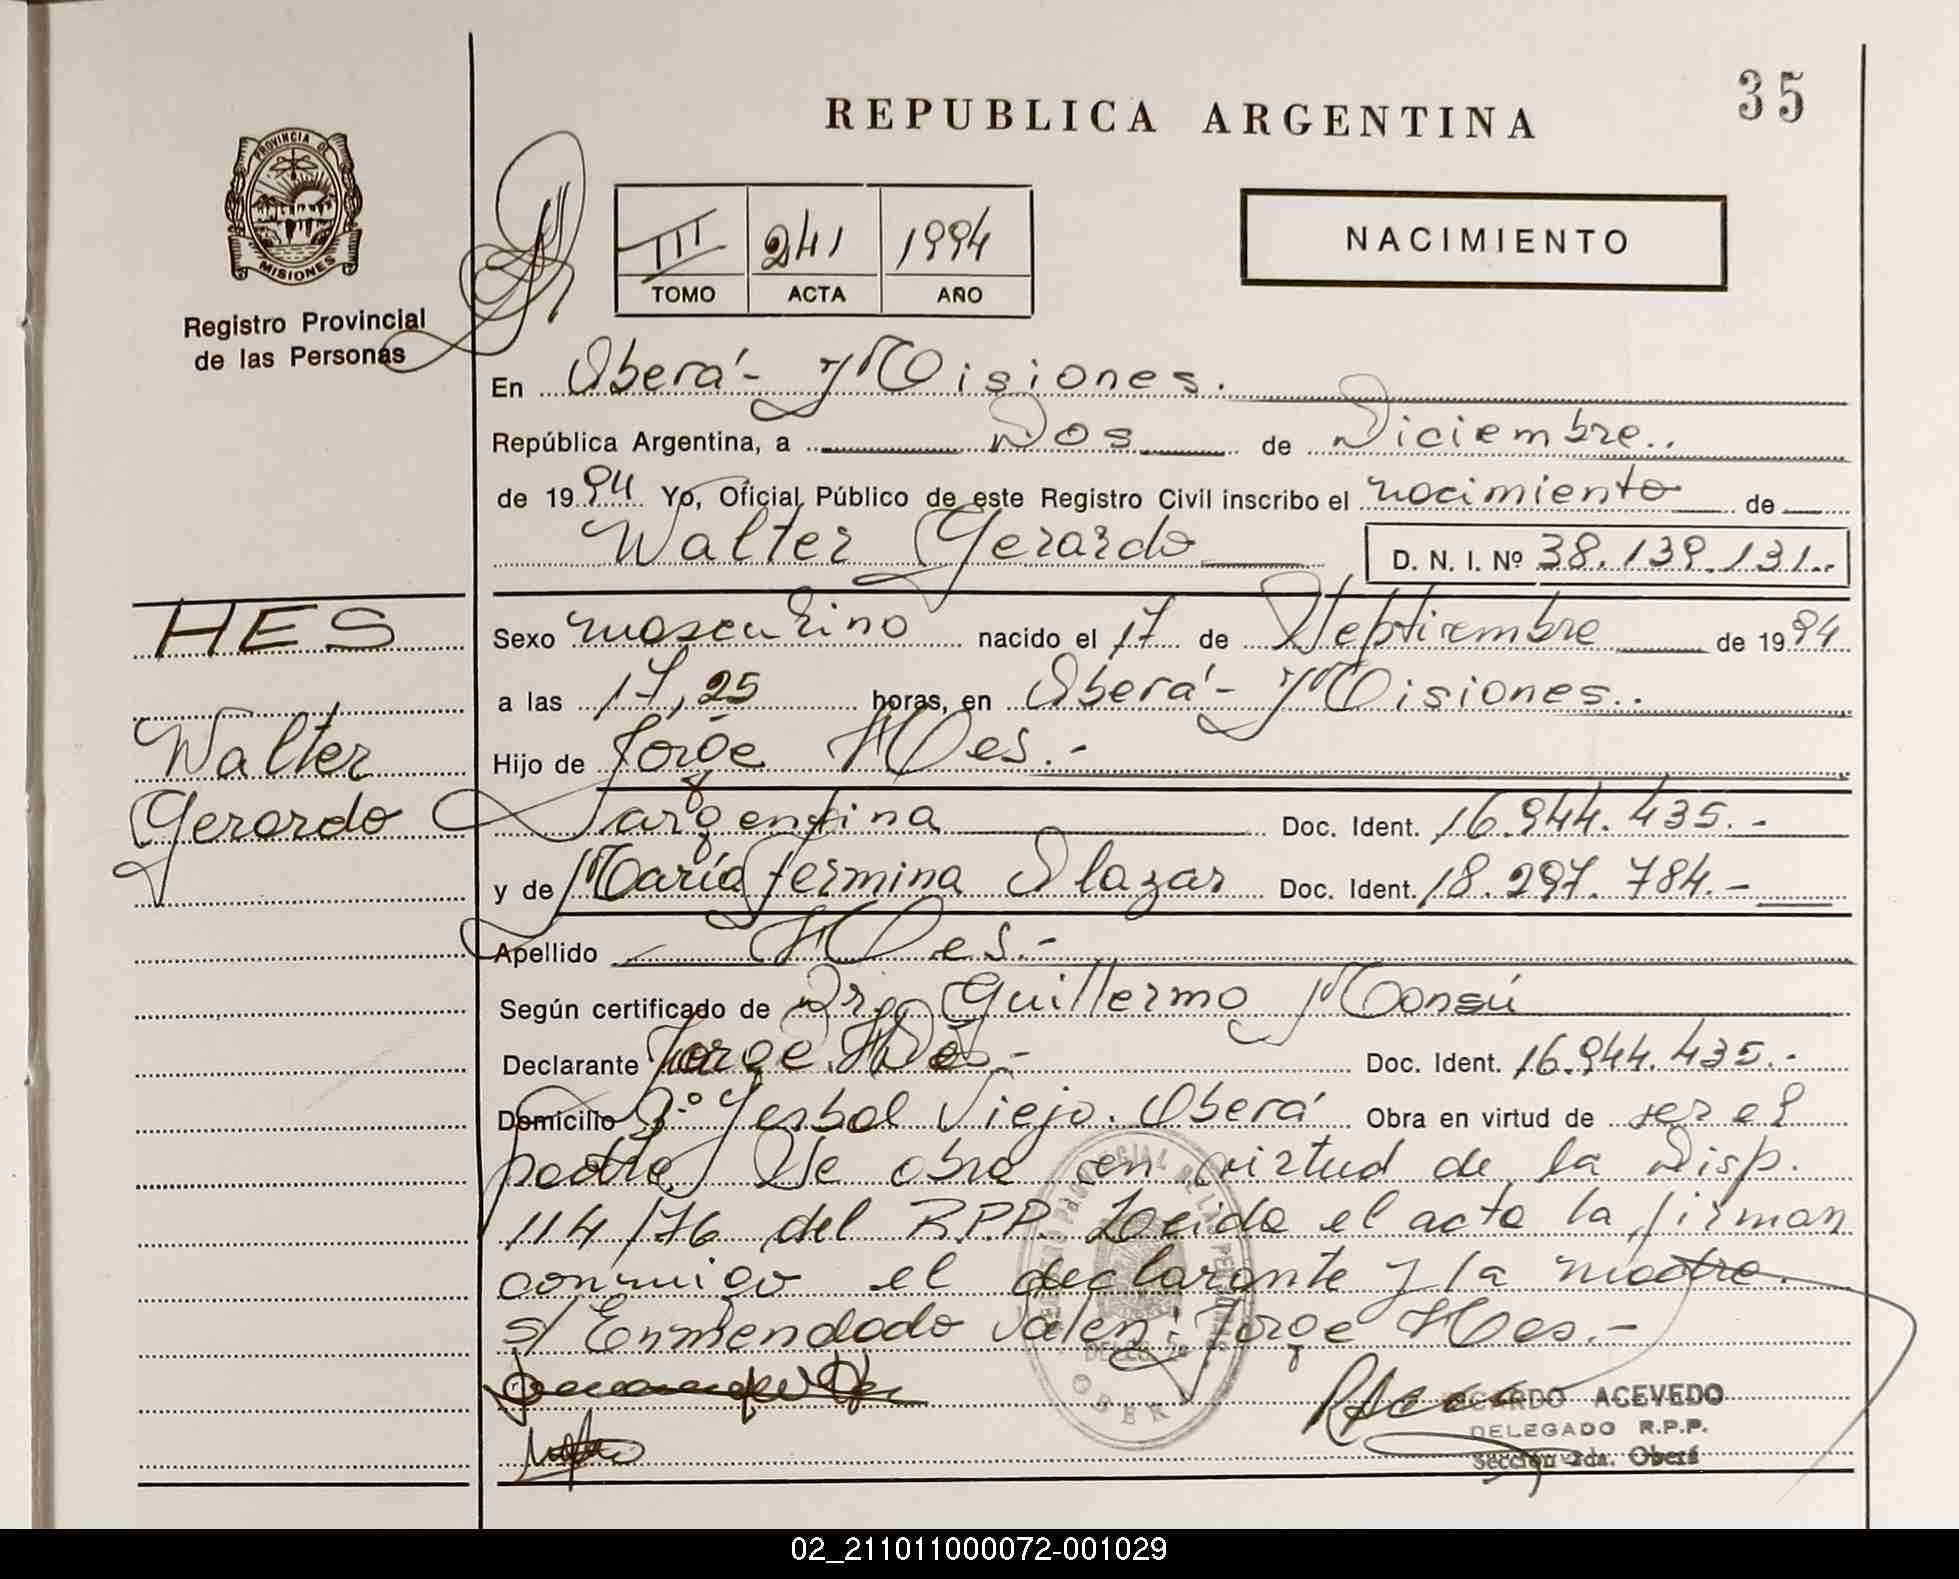 35
REPUBLICA ARGENTINA
PROVINCIA DE
MISIONES
Registro Provincial
de las Personas
III 241 1994
TOMO ACTA AÑO
NACIMIENTO
En Oberá - Misiones.
República Argentina, a Dos de Diciembre..
de 1994 Yo, Oficial Público de este Registro Civil inscribo el nacimiento de
Walter Gerardo D. N. I. Nº 38.139.131..
HES
Sexo masculino nacido el 17 de Septiembre de 1994
a las 17,25 horas, en Oberá - Misiones..
Walter
Hijo de Jorge Hes.-
Gerardo
argentina Doc. Ident. 16.944.435.-
y de María Fermina Olazar Doc. Ident. 18.297.784.-
Apellido Hes.-
Según certificado de Dr. Guillermo Monsú
Declarante Jorge Hes.- Doc. Ident. 16.944.435.-
Domicilio Bº Yerbal Viejo. Oberá Obra en virtud de ser el
padre. Se obra en virtud de la Disp.
114/76 del R.P.P. Leída el acta la firman
conmigo el declarante y la madre.
s/ Enmendado Valen: Jorge Hes.-
RICARDO ACEVEDO
DELEGADO R.P.P.
Sección 2da. Oberá
02_211011000072-001029